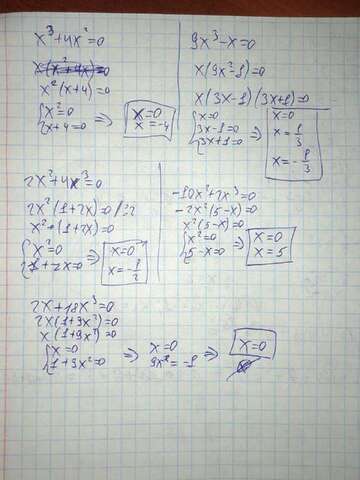 x³+4x²=0
x²(x+4)=0
{x²=0
x+4=0 => x=0
x=-4
9x³-x=0
x(9x²-1)=0
x(3x-1)(3x+1)=0
{x=0
3x-1=0
3x+1=0 => x=0
x=1/3
x=-1/3
2x²+4x³=0
2x²(1+2x)=0 /:2
x²*(1+2x)=0
{x²=0
1+2x=0 => x=0
x=-1/2
-10x²+2x³=0
-2x²(5-x)=0
x²(5-x)=0
{x²=0
5-x=0 => x=0
x=5
2x+18x³=0
2x(1+9x²)=0
x(1+9x²)=0
{x=0
1+9x²=0 => x=0
9x²=-1 => x=0